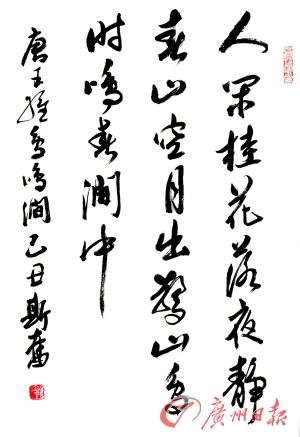 人闲桂花落夜静
春山空月出惊山鸟
时鸣春涧中
唐王维鸟鸣涧己丑斯奋
广州日报